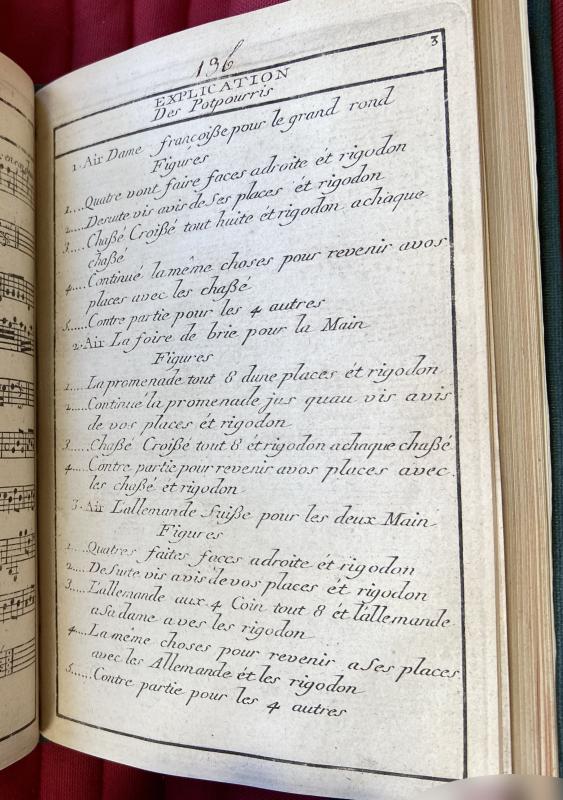 136
3
EXPLICATION
Des Potpourris
1. Air Dame françoiße pour le grand rond
Figures
1.... Quatre vont faire faces adroite ét rigodon
2.... Desuite vis avis de Ses places ét rigodon
3.... Chaßé Croißé tout huite ét rigodon achaque
chaßé
4.... Continué la même choses pour revenir avos
places avec les chaßé
5..... Contre partie pour les 4 autres
2. Air La foire de brie pour la Main
Figures
1.... La promenade tout 8 dune places ét rigodon
2.... Continué la promenade jus quau vis avis
de vos places ét rigodon
3..... Chaßé Croißé tout 8 ét rigodon achaque chaßé
4.... Contre partie pour revenir avos places avec
les chaßé ét rigodon
3. Air L'allemande Suiße pour les deux Main
Figures
1.... Quatres faites faces adroite ét rigodon
2.... De Suite vis avis de vos places ét rigodon
3.... L'allemande aux 4 Coin tout 8 ét l'allemande
asa dame aves les rigodon
4.... La même choses pour revenir ases places
avec les Allemande ét les rigodon
5...... Contre partie pour les 4 autres